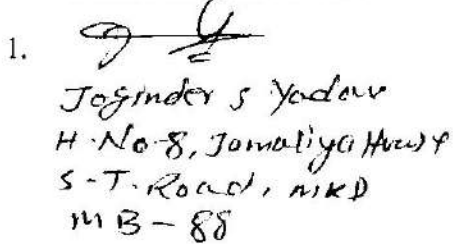 1.
Joginder s Yadav
H.No-8, Jamaliya House
S-T. Road, MKD
MB-88